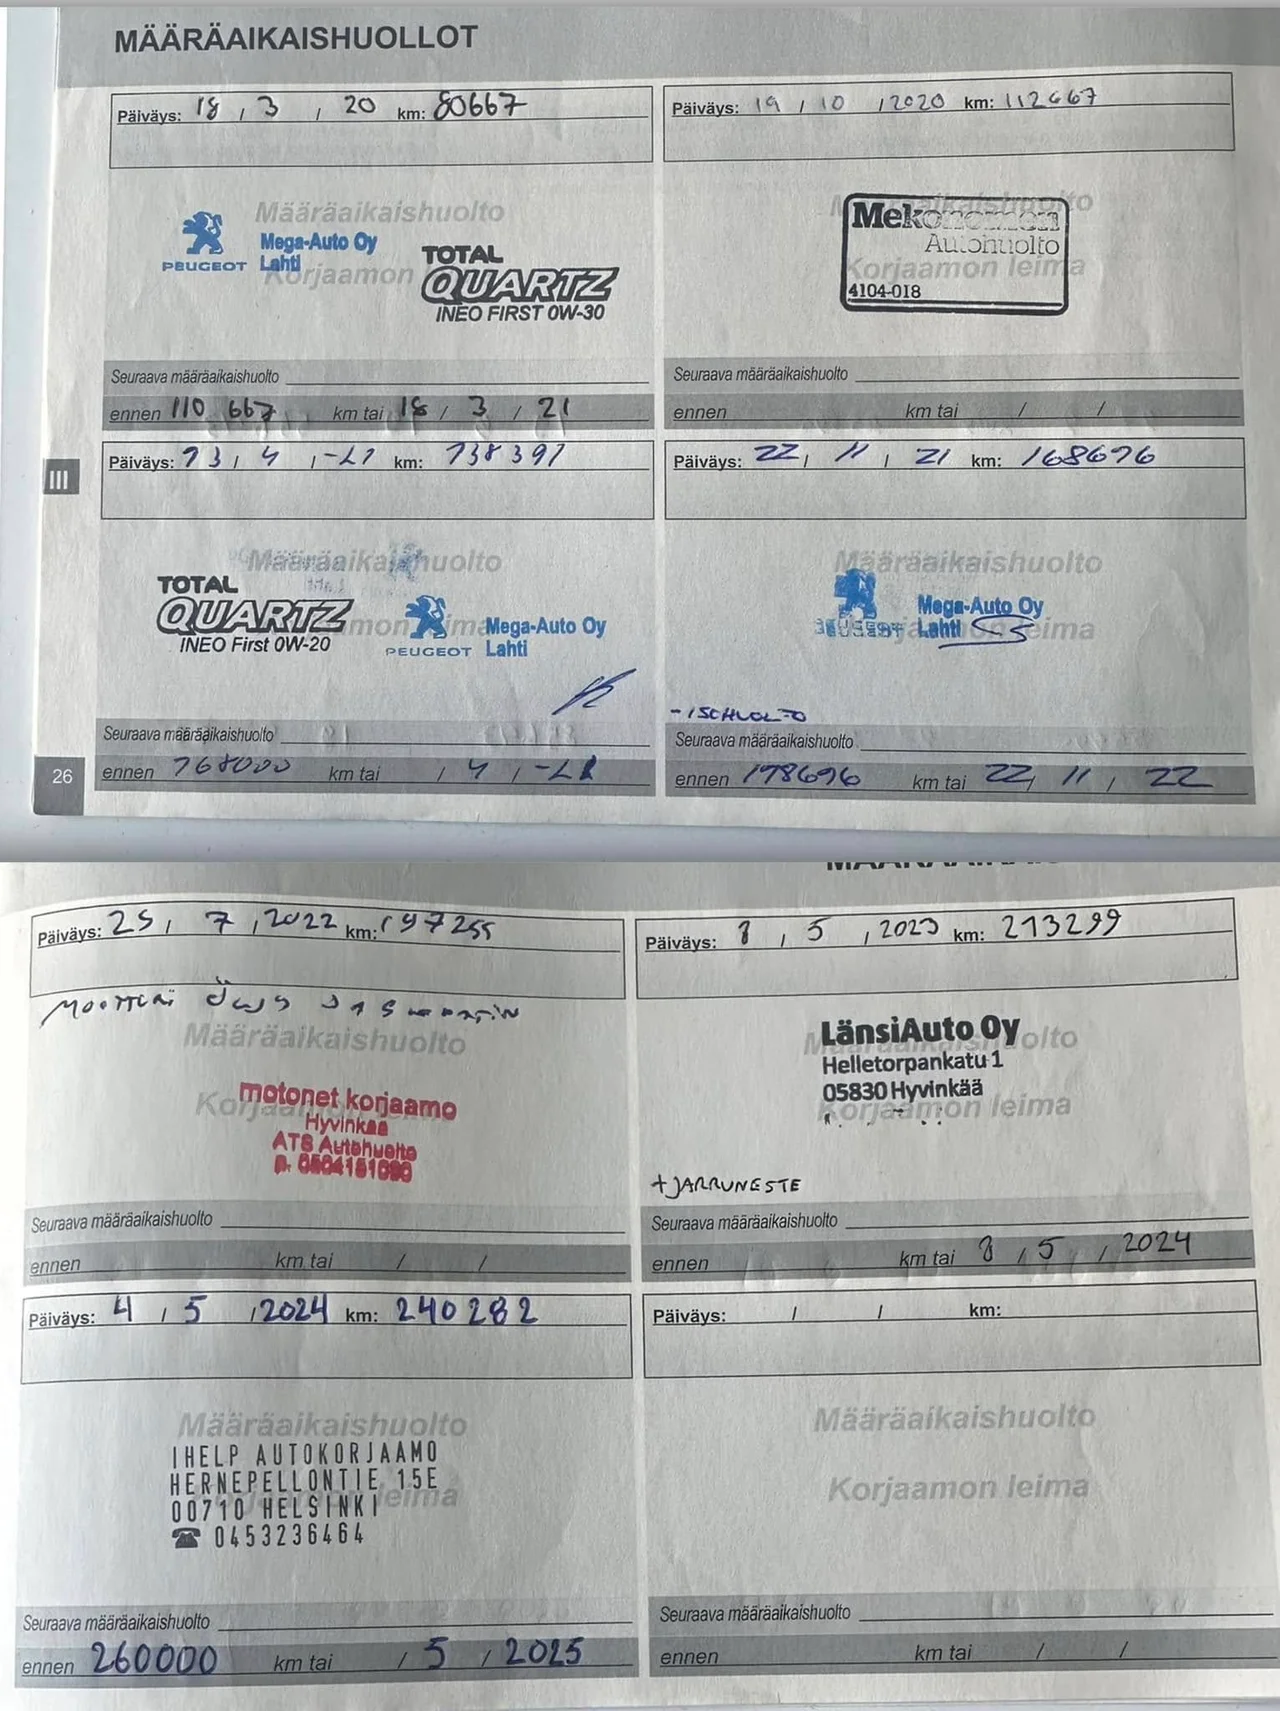 MÄÄRÄAIKAISHUOLLOT
Päiväys: 18 / 3 / 20 km: 80667
Määräaikaishuolto
PEUGEOT
Mega-Auto Oy
Lahti
Korjaamon
TOTAL
QUARTZ
INEO FIRST 0W-30
Seuraava määräaikaishuolto
ennen 110 667 km tai 18 / 3 / 21
Päiväys: 19 / 10 / 2020 km: 112667
Mekonomen
Autohuolto
Korjaamon leima
4104-018
Seuraava määräaikaishuolto
ennen km tai / /
Päiväys: 13 / 4 / -21 km: 138391
Määräaikaishuolto
TOTAL
QUARTZ
INEO First 0W-20
PEUGEOT
Mega-Auto Oy
Lahti
Seuraava määräaikaishuolto
ennen 168000 km tai / 4 / -22
Päiväys: 22 / 11 / 21 km: 168696
Määräaikaishuolto
Mega-Auto Oy
PEUGEOT Lahti
leima
- ISOHUOLTO
Seuraava määräaikaishuolto
ennen 198696 km tai 22 / 11 / 22
III
26
Päiväys: 25 / 7 / 2022 km: 197255
MOOTTORI ÖLJY JA SUODATIN
Määräaikaishuolto
motonet korjaamo
Hyvinkää
ATS Autohuolto
Seuraava määräaikaishuolto
ennen km tai / /
Päiväys: 8 / 5 / 2023 km: 213299
LänsiAuto Oy
Helletorpankatu 1
05830 Hyvinkää
Korjaamon leima
+JARRUNESTE
Seuraava määräaikaishuolto
ennen km tai 8 / 5 / 2024
Päiväys: 4 / 5 / 2024 km: 240282
Määräaikaishuolto
IHELP AUTOKORJAAMO
HERNEPELLONTIE 15E
00710 HELSINKI
☎ 0453236464
Seuraava määräaikaishuolto
ennen 260000 km tai / 5 / 2025
Päiväys: / / km:
Määräaikaishuolto
Korjaamon leima
Seuraava määräaikaishuolto
ennen km tai / /